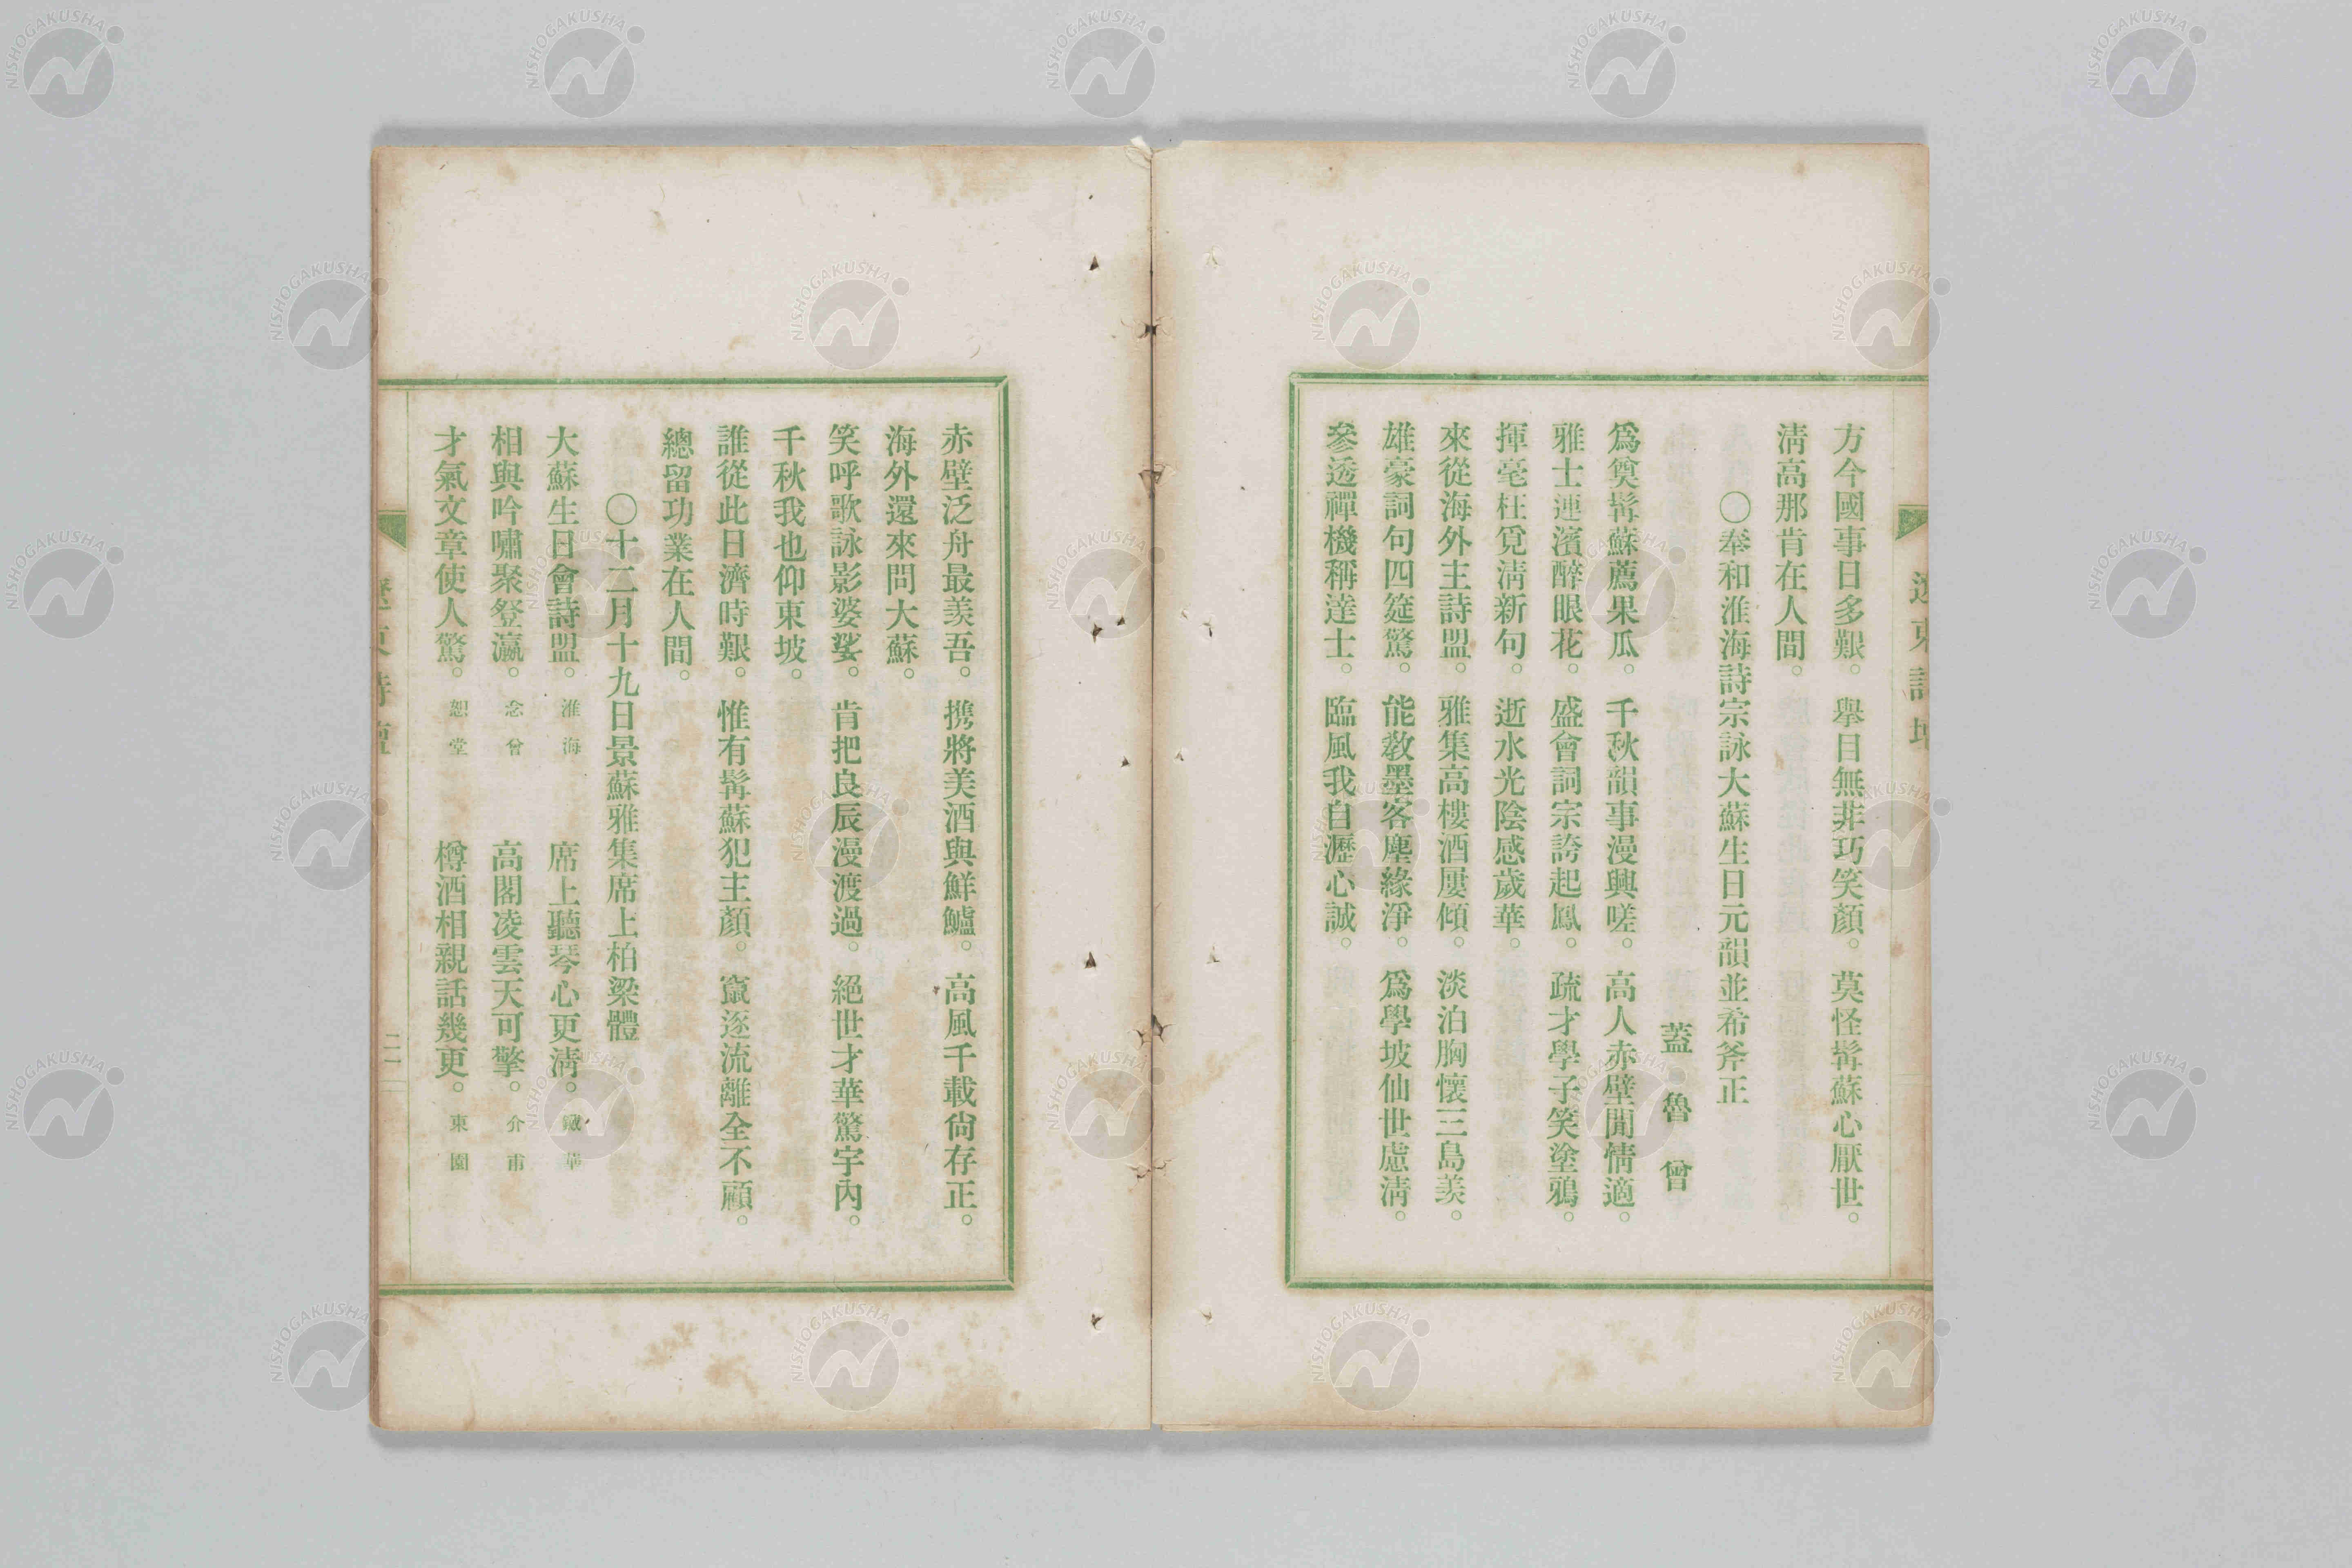 方今國事日多艱。擧目無非巧笑顏。莫怪髯蘇心厭世。
淸高那肯在人間。
〇奉和淮海詩宗詠大蘇生日元韻並希斧正
蓋魯曾
爲奠髯蘇薦果瓜。千秋韻事漫興嗟。高人赤壁閒情適。
雅士連濱醉眼花。盛會詞宗誇起鳳。疏才學子笑塗鴉。
揮毫枉覓淸新句。逝水光陰感歲華。
來從海外主詩盟。雅集高樓酒屢傾。淡泊胸懷三島羨。
雄豪詞句四筵驚。能敎墨客塵緣淨。爲學坡仙世慮淸。
參透禪機稱達士。臨風我自瀝心誠。
赤壁泛舟最羨吾。携將美酒與鮮鱸。高風千載尙存正。
海外還來問大蘇。
笑呼歌詠影婆娑。肯把良辰漫渡過。絕世才華驚宇內。
千秋我也仰東坡。
誰從此日濟時艱。惟有髯蘇犯主顏。竄逐流離全不顧。
總留功業在人間。
〇十二月十九日景蘇雅集席上柏梁體
大蘇生日會詩盟。淮海 席上聽琴心更淸。鐵華
相與吟嘯聚登瀛。念曾 高閣凌雲天可擎。介甫
才氣文章使人驚。恕堂 樽酒相親話幾更。東園
遼東詩壇
二一
NISHOGAKUSHA